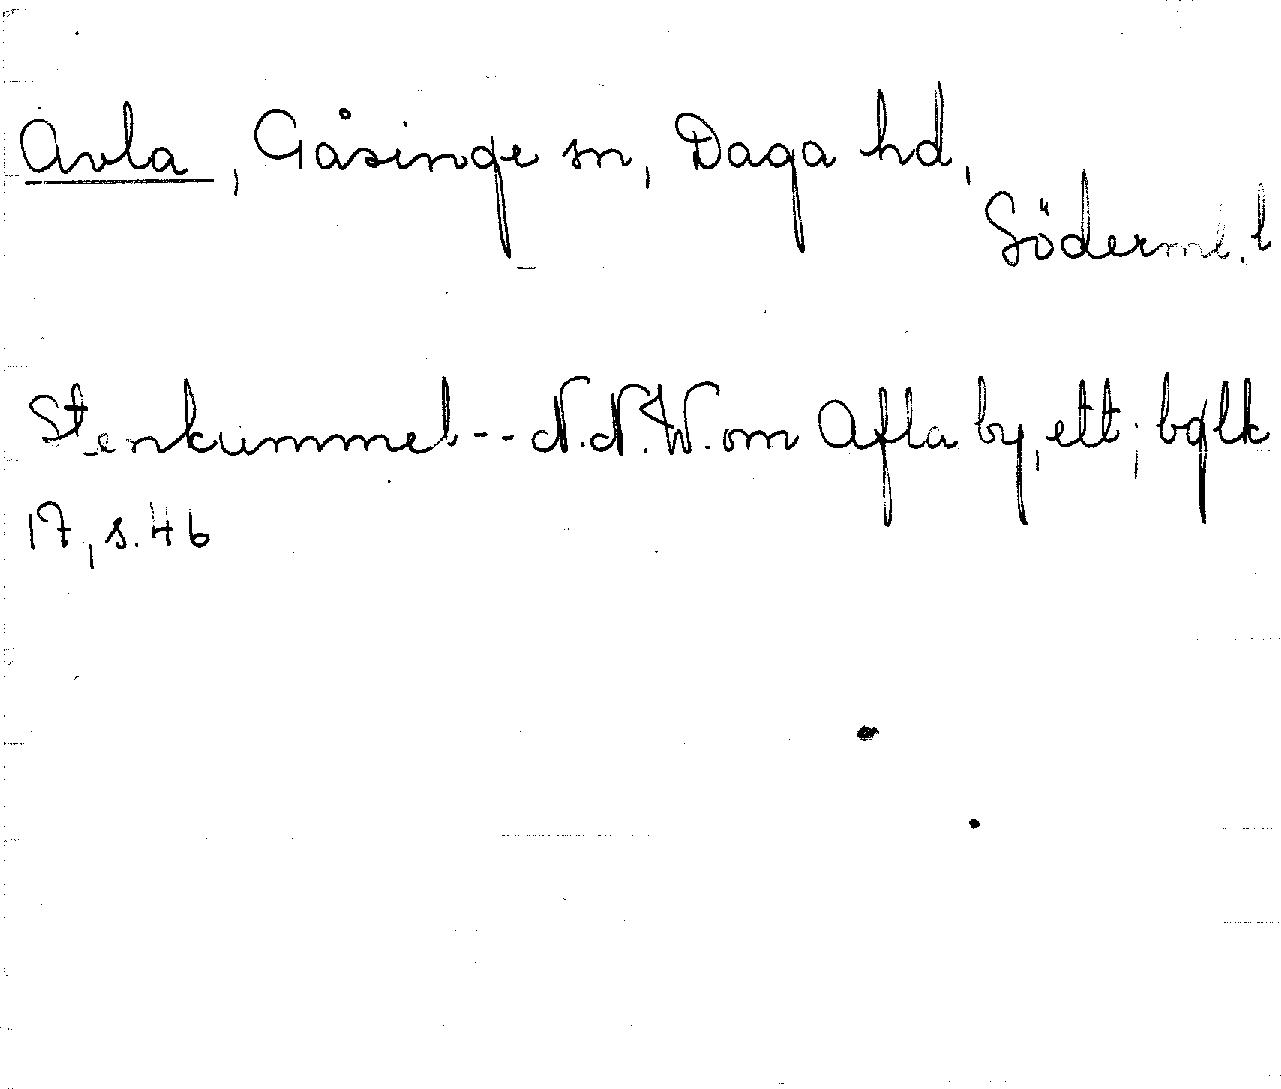 Avla, Gåsinge sn, Daga hd,
Söderml. l
Stenkummel -- N.N.W. om Afla by, ett; bglk
17, s. 46